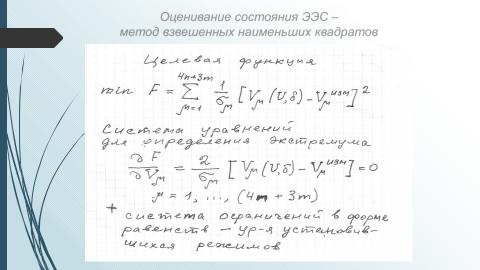 Оценивание состояния ЭЭС –
метод взвешенных наименьших квадратов
Целевая функция
min F = Σ_{μ=1}^{4n+3m} 1/σ_μ [V_μ(U,δ) – V_μ^{изм}]²
Система уравнений
для определения экстремума
∂F/∂V_μ = 2/σ_μ [V_μ(U,δ) – V_μ^{изм}] = 0
μ = 1, ..., (4m + 3m)
+
система ограничений в форме
равенств – ур-я установив-
шихся режимов